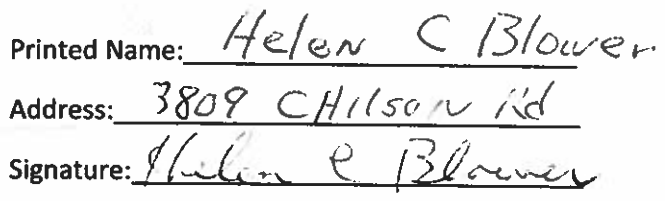 Printed Name: Helen C Blower
Address: 3809 CHilson Rd
Signature: Helen C Blower